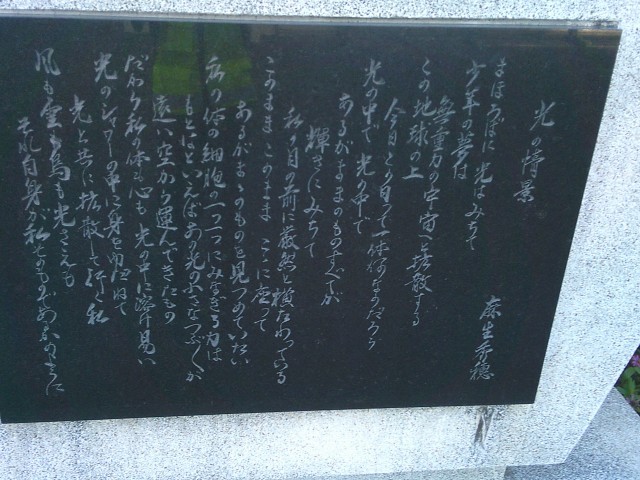 光の情景
麻生秀穂
まほろばに 光はみちて
少年の夢は
無重力の宇宙へ拡散する
この地球の上
今日 この日って一体何なのだろう
光の中で 光の中で
あるがままのものすべてが
輝きにみちて
私の目の前に厳然と横たわっている
このまま このまま ここに座って
あるがままのものを見つめていたい
私の体の細胞一つ一つにみなぎる力は
もとはといえばあの光の小さなつぶつぶが
遠い空から運んできたもの
だから私の体も心も 光の中に溶け易い
光のシャワーの中に身を
光と共に拡散して行く私
風も雲も鳥も光さえも
それ自身が私そのものであるかのように